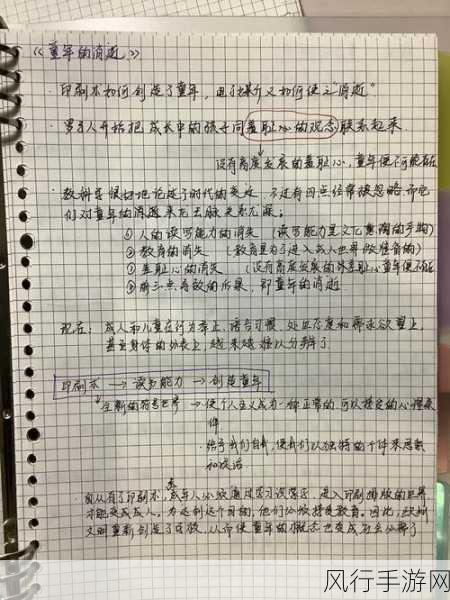 《童年的消逝》
·印刷术如何创造了童年，电子媒介又如何使之"消逝"
·罗马人开始把成长中的孩子同羞耻心的观念联系起来
没有高度发展的羞耻心，童年便不可能存在
·教科书 地论述了时代的变迁，不过有四点经常被忽略，而它
们对童年的消逝来龙去脉关系尤深：
①人的读写能力的消失（读写能力是文化 的 ）
②教育的消失（教育是为了进入成人世界做准备的）
③羞耻心的消失（没有高度发展的 羞耻心童年便不存在
④前三点导致的后果，即童年的消逝
现在：成人和儿童在行为举止、语言习惯、处世态度和需求欲望上，
甚至身体的外表上，越来越难以分辨了
印刷术→读写能力→创造童年
全新的符号世界→使个人主义成为一种正常的、可以接受的心理条
件
给予我们自我，使我们以独特的个体来思索
和谈话
·自从有了印刷术，成年人必须通过学习识字，进入印刷排版的世界，
才能变成成人。为达到这个目的，他们必须接受教育。因此，欧洲
文明重新创造了学校，从而使童年的概念也变成社会必需了
风行手游网